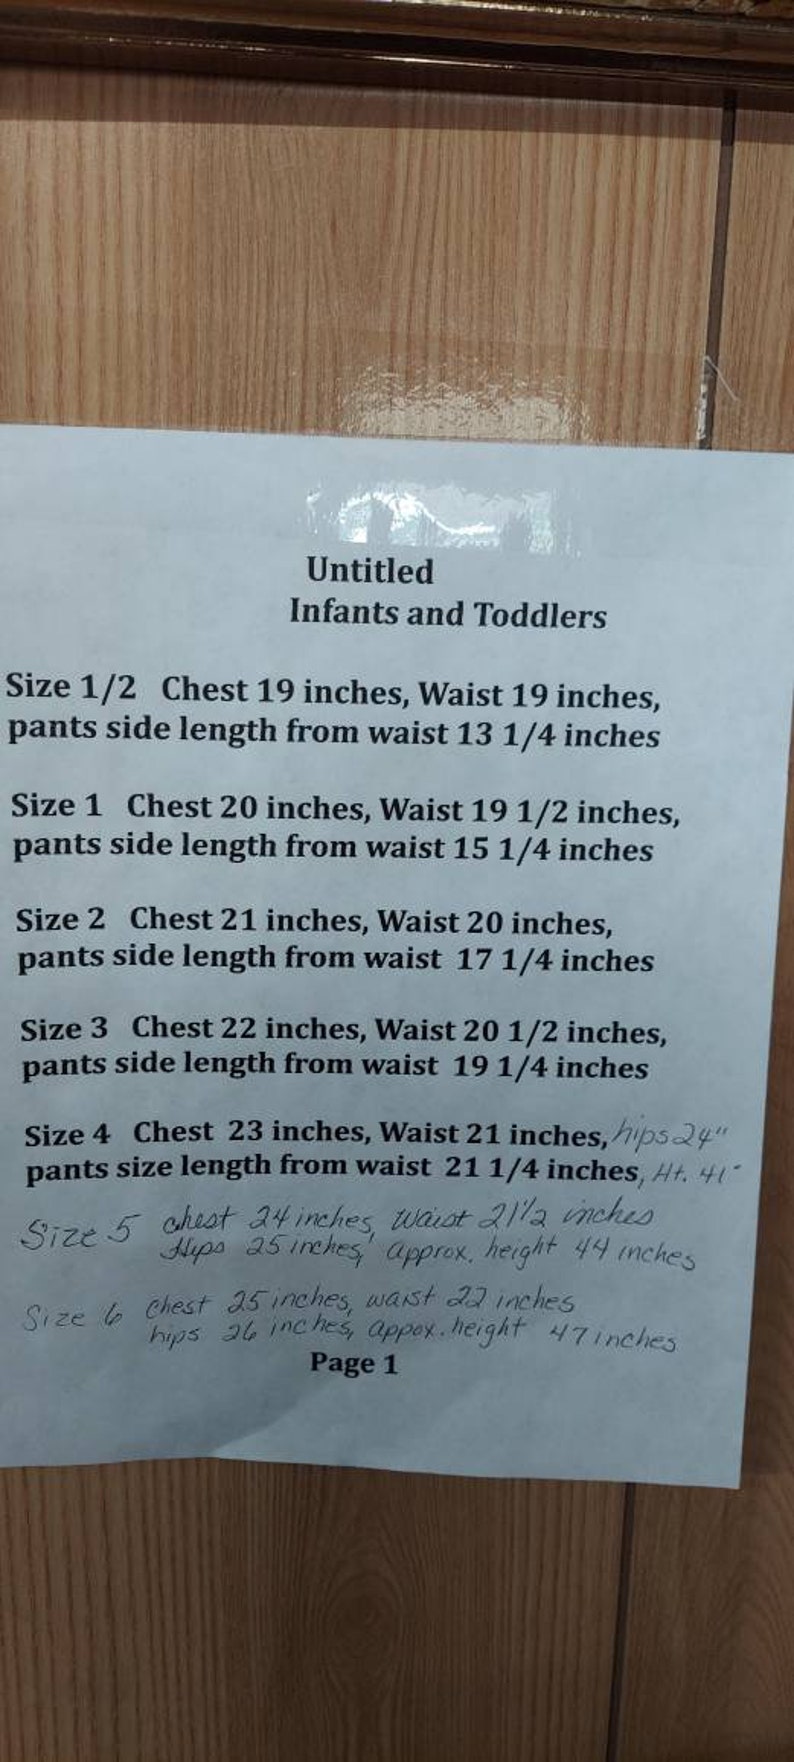 Untitled
Infants and Toddlers
Size 1/2 Chest 19 inches, Waist 19 inches,
pants side length from waist 13 1/4 inches
Size 1 Chest 20 inches, Waist 19 1/2 inches,
pants side length from waist 15 1/4 inches
Size 2 Chest 21 inches, Waist 20 inches,
pants side length from waist 17 1/4 inches
Size 3 Chest 22 inches, Waist 20 1/2 inches,
pants side length from waist 19 1/4 inches
Size 4 Chest 23 inches, Waist 21 inches, hips 24"
pants size length from waist 21 1/4 inches, Ht. 41"
Size 5 chest 24 inches, waist 21 1/2 inches
Hips 25 inches, approx. height 44 inches
Size 6 chest 25 inches, waist 22 inches
hips 26 inches, appox. height 47 inches
Page 1